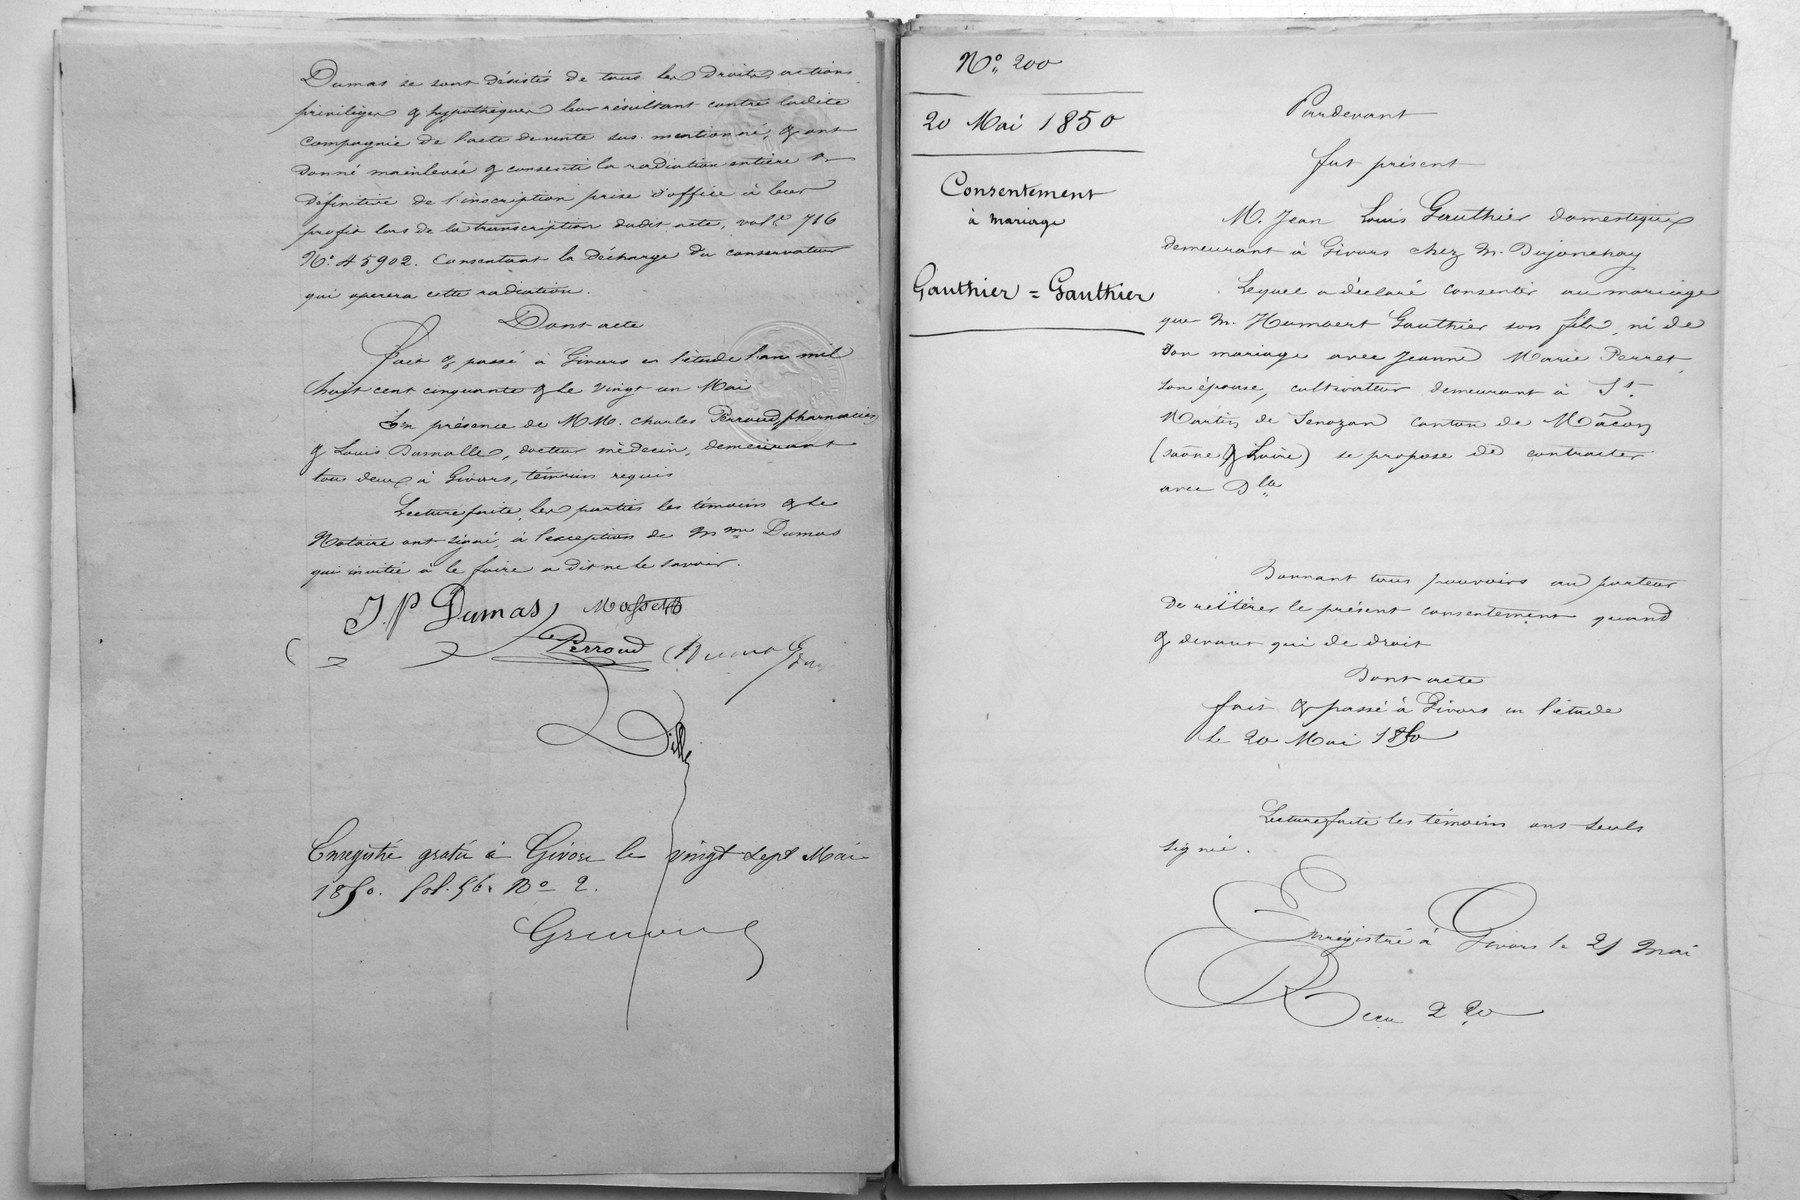 Dumas se sont désistés de tous les droits, actions,
privilèges & hypothèques leur résultant contre ladite
compagnie de l'acte de vente sus-mentionné, & ont
donné mainlevée & consenti la radiation entière &
définitive de l'inscription prise d'office à leur
profit lors de la transcription dudit acte, vol.e 716
N.° 45902. Consentant la décharge du conservateur
qui opérera cette radiation.
Dont acte
Fait & passé à Givors en l'étude l'an mil
huit cent cinquante & le vingt un Mai
En présence de MM. Charles Perroud pharmacien
& Louis Dumolle, docteur médecin, demeurant
tous deux à Givors, témoins requis
Lecture faite, les parties les témoins & le
Notaire ont signé, à l'exception de Mme Dumas
qui invitée à le faire a dit ne le savoir.
J. P Dumas
Perroud
Enregistré gratis à Givors le vingt sept Mai
1850. fol. 56. No 2.
N.° 200
20 Mai 1850
Consentement
à mariage
Gauthier = Gauthier
Pardevant
fut présent
M. Jean Louis Gauthier domestique
demeurant à Givors chez M. Dujonchay
Lequel a déclaré consentir au mariage
que M. Humbert Gauthier son fils, né de
son mariage avec Jeanne Marie Perret,
son épouse, cultivateur demeurant à St
Martin de Senozan canton de Mâcon
(Saône & Loire) se propose de contracter
avec Dlle
Donnant tous pouvoirs au porteur
de réïtérer le présent consentement quand
& devant qui de droit
Dont acte
fait & passé à Givors en l'étude
le 20 Mai 1850
Lecture faite les témoins ont seuls
signé.
Enregistré à Givors le 21 mai
Reçu 2 20